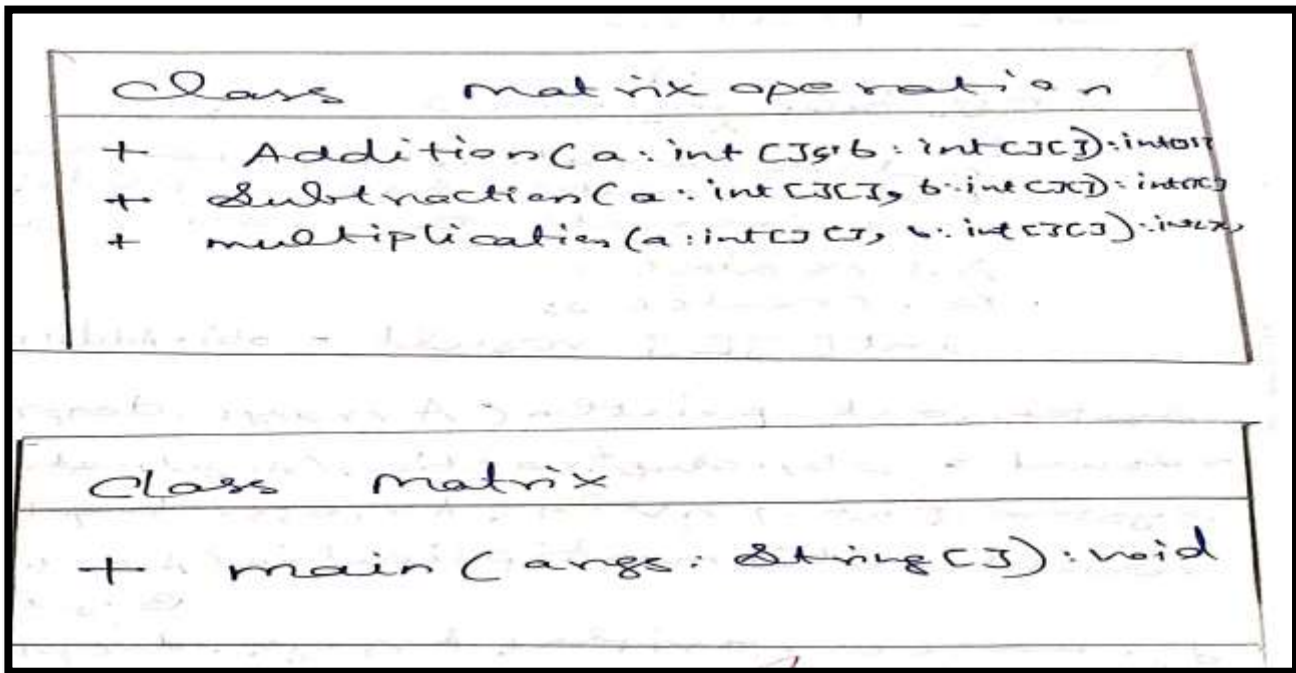 Class matrix operation
+ Addition(a: int[][], b: int[][]): int[][]
+ Subtraction(a: int[][], b: int[][]): int[][]
+ multiplication(a: int[][], b: int[][]): int[][]
Class Matrix
+ main(args: String[]): void